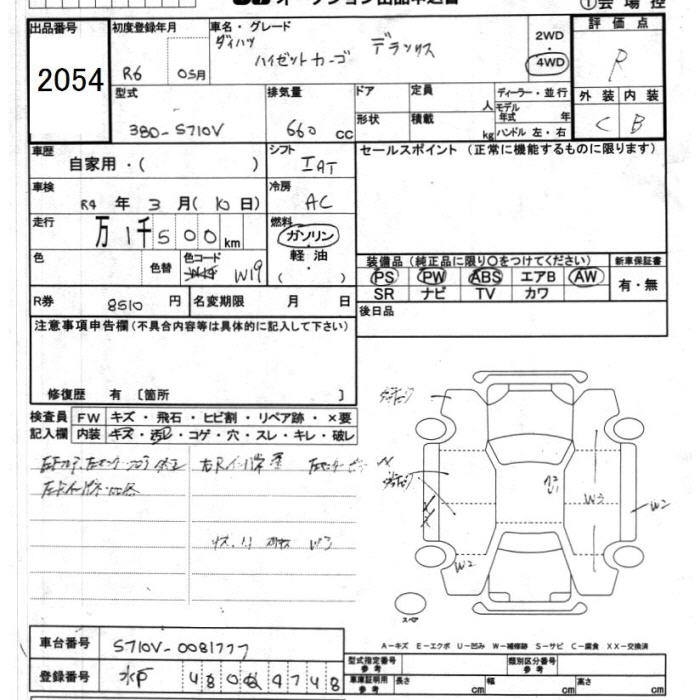 オークション出品申込書
①会場控
出品番号
2054
初度登録年月
R6 05月
車名・グレード
ダイハツ
ハイゼットカーゴ デラックス
2WD
・
4WD
評価点
R
型式
3BD-S710V
排気量
660 cc
ドア
形状
定員
人
積載
kg
ディーラー・並行
モデル
年式 年
ハンドル 左・右
外装 内装
C B
車歴
自家用・( )
シフト
IAT
セールスポイント (正常に機能するものに限ります)
車検
R4 年 3 月 (10 日)
冷房
AC
走行
万 1千500 km
燃料
ガソリン
軽油
・
( )
色
色替
色コード
W19
装備品 (純正品に限り○をつけてください)
PS PW ABS エアB AW
SR ナビ TV カワ
新車保証書
有・無
R券 8510 円
名変期限 月 日
後日品
注意事項申告欄 (不具合内容等は具体的に記入して下さい)
修復歴 有 〔箇所 〕
検査員
記入欄
FW キズ・飛石・ヒビ割・リペア跡・×要
内装 キズ・汚レ・コゲ・穴・スレ・キレ・破レ
W3
W3
W2
W2
スペア
A-キズ E-エクボ U-凹み W-補修跡 S-サビ C-腐食 XX-交換済
車台番号 S710V-0081777
登録番号 水戸 480 9748
型式指定番号
参考
類別区分番号
参考
車庫証明用
参考
長さ cm 幅 cm 高さ cm